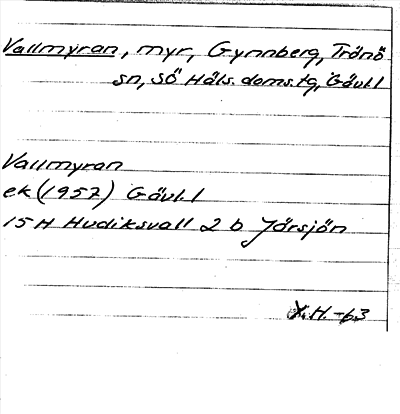 Vallmyran, myr, Gynnberg, Trönö
sn, SÖ Häls. doms.tg, Gävl l
Vallmyran
ek (1957) Gävl. l
15 H Hudiksvall 2 b Järsjön
H. -63